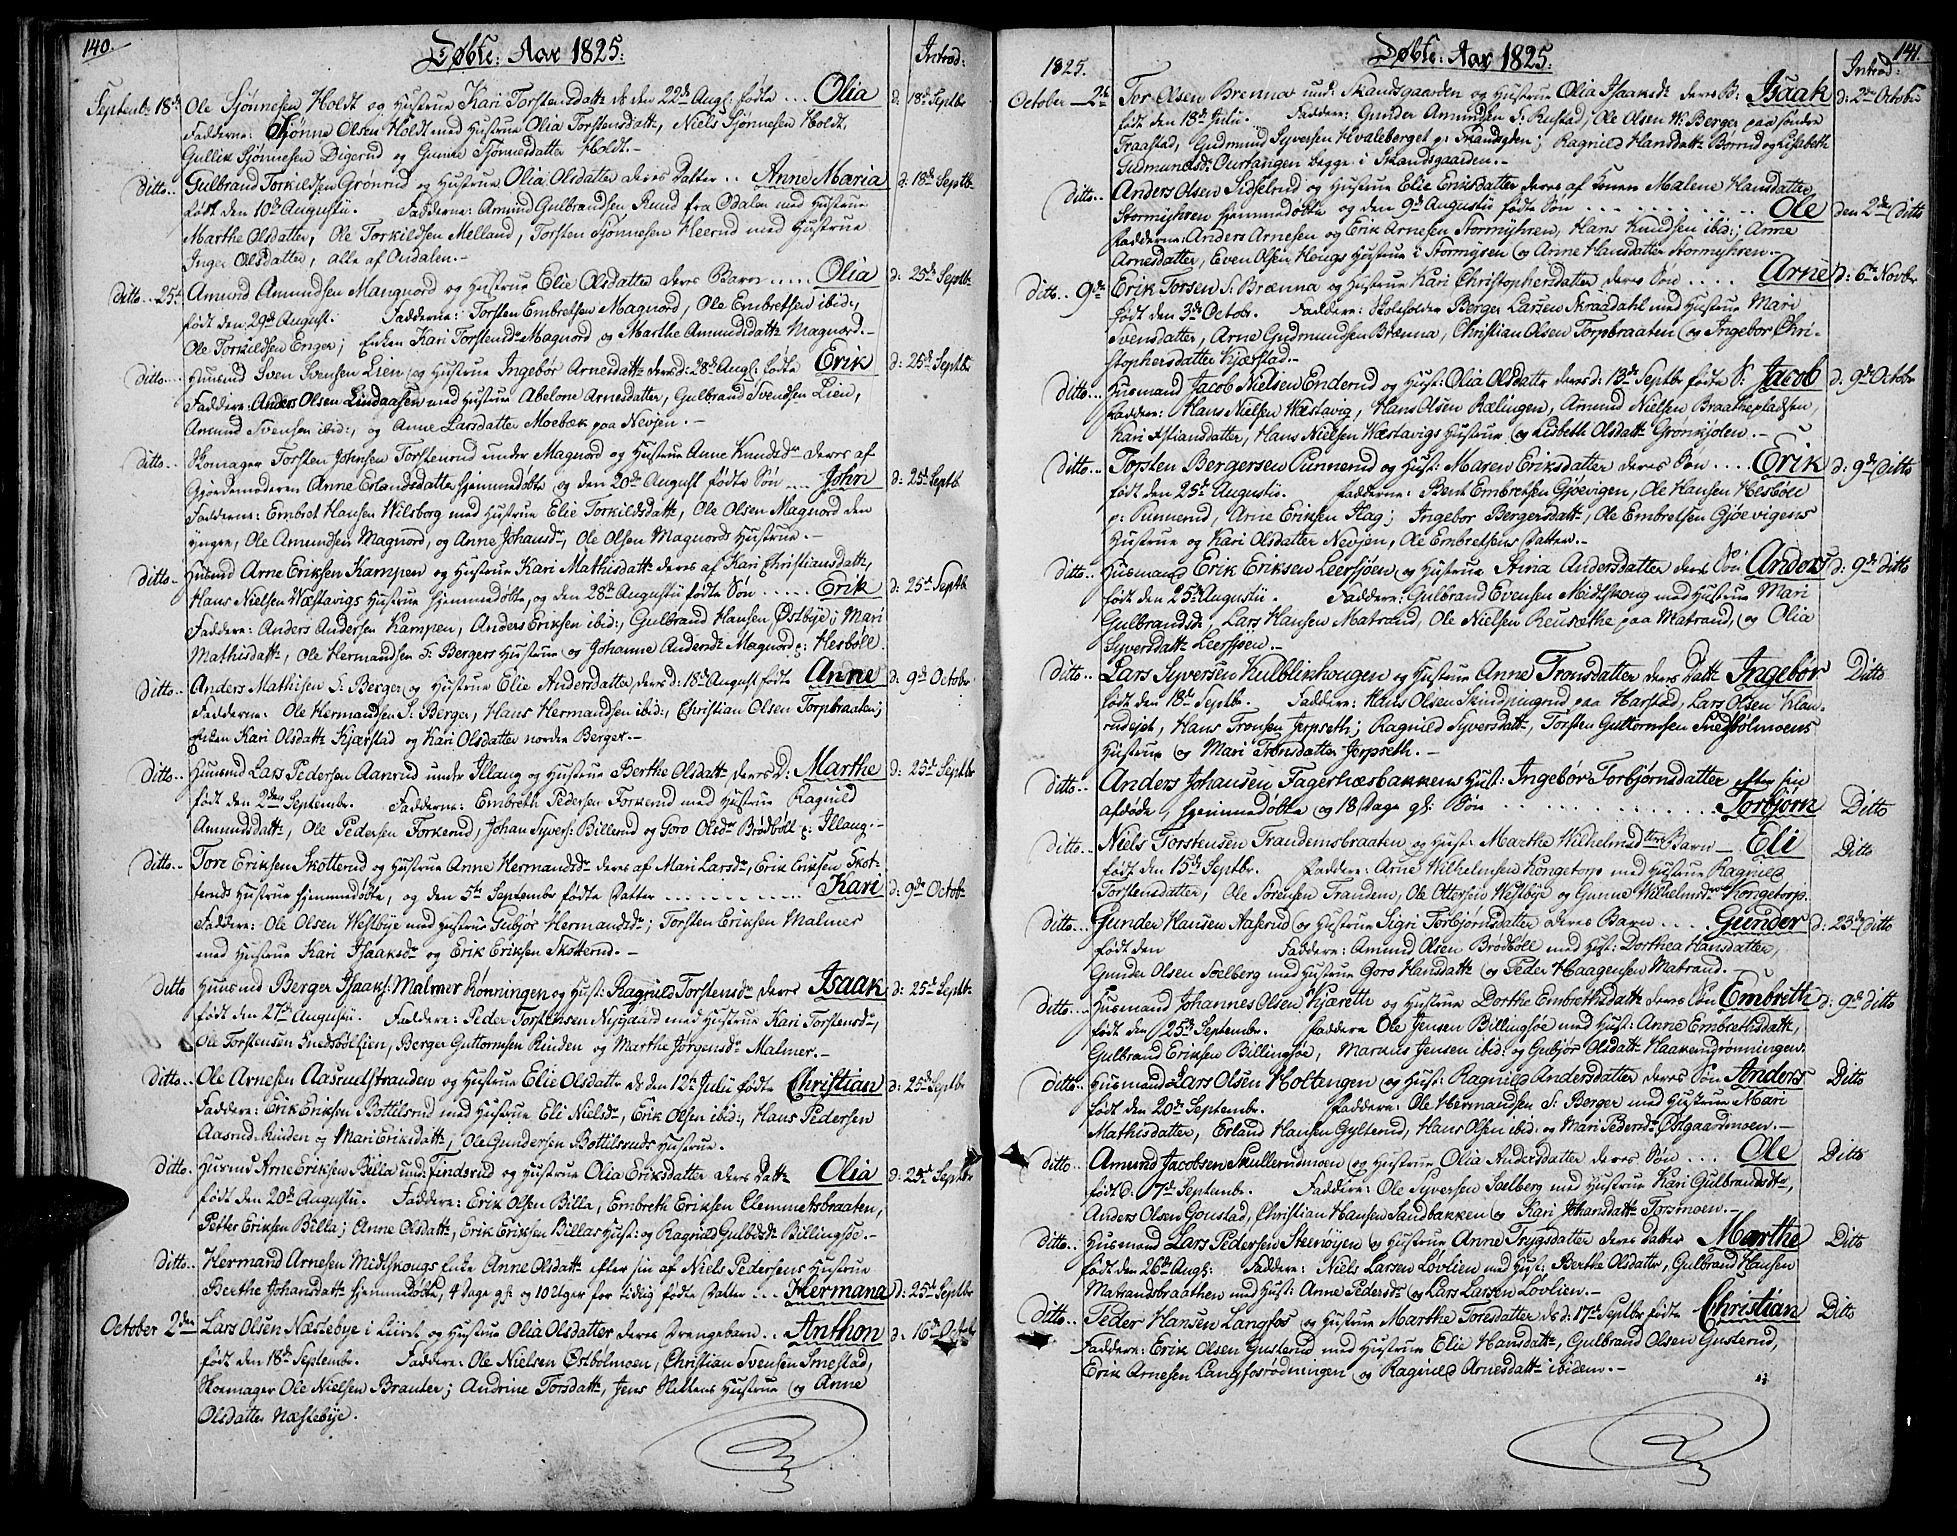 140.
Døbte: Aar 1825:
Introd:
Septembr 18de Ole Sjønnesen Holdt og Hustrue Kari Torstensdattr ds den 22de Augl: fødte ... Olia d: 18de Septbr
Fadderne: Sjønne Olsen Holdt med Hustrue Olia Torstensdattr, Niels Sjønnesen Holdt,
Gullik Sjønnesen Digerud og Gunne Sjønnesdatter Holdt.-
Ditto.. Gulbrand Torkildsen Grønrud og Hustrue Olia Olsdatter deres Datter .. Anne Maria d: 18de Septb.
født den 10de Augustii. Fadderne: Amund Gulbrandsen Rund fra Odalen med Hustrue
Marthe Olsdatter, Ole Torkildsen Melland, Torsten Sjønnesen Heerud med Hustrue
Inger Olsdatter, alle af Audalen.-
Ditto.. 25de Amund Amundsen Mangnord og Hustrue Elie Olsdatter deres Barn ..... Olia d: 25de Septb.
født den 29de August. Fadderne: Torsten Embretsen Magnord, Ole Embretsen ibid:,
Ole Torkildsen Enger; Enken Kari Torstensdr Magnord og Marthe Amundsdattr Magnord.-
Ditto... Huusmd Sven Svensen Lien og Hustrue Ingebør Arnesdattr deres d: 28de Augl: fødte Erik d: 25de Septbr
Faddere: Anders Olsen Lindaasen med Hustrue Abelone Arnesdatter, Gulbrand Svendsen Lien,
Amund Svensen ibid:, og Anne Larsdatter Moebæk paa Nevsen.-
Ditto.. Skomager Torsten Johnsen Torstenrud under Magnord og Hustrue Anne Knudsdr deres af
Gjordemoderen Anne Erlandsdatter hjemmedøbte og den 20de August fødte Søn .... John d: 25de Septb.
Fadderne: Embret Hansen Wilsborg med Hustrue Elie Torkildsdattr, Ole Olsen Magnord den
yngre, Ole Amundsen Magnord, og Anne Johansdr, Ole Olsen Magnords Hustrue.-
Ditto.. Huusmd Arne Eriksen Kampen og Hustrue Kari Mathisdattr deres af Kari Christiansdattr,
Hans Nielsen Wæstavigs Hustrue hjemmedøbte, og den 28de Augustii fødte Søn ..... Erik d: 25de Septb
Faddere: Anders Andersen Kampen, Anders Eriksen ibid:, Gulbrand Hansen Østbye; Mari
Mathisdattr, Ole Hermandsen S: Bergers Hustrue og Johanne Andersdr Magnord p: Hesbøll.
Ditto.. Anders Mathisen S: Berger og Hustrue Elie Andersdatter, deres d: 18de August fødte Anne d: 9de Octobr
Faddere: Ole Hermandsen S: Berger, Hans Hermandsen ibid:, Christian Olsen Torpbraaten;
Enken Kari Olsdattr Kjærstad og Kari Olsdatter nordre Berger.-
Ditto.. Huusmd Lars Pedersen Aanrud under Illaug og Hustrue Berthe Olsdattr deres D: Marthe d: 25de Septbr
født den 2den Septembr. Faddere: Embreth Pedersen Torkerud med Hustrue Ragnild
Amundsdattr, Ole Pedersen Torkerud, Johan Syvers: Billerud og Goro Olsdr Brødbøll p: Illaug.-
Ditto.. Tore Eriksen Skotterud og Hustrue Anne Hermandsdr deres af Mari Larsdr, Erik Eriksen Skot-
teruds Hustrue hjemmedøbte, og den 5te Septembr fødte Datter .......... Kari d: 9de Octobr.
Faddere: Ole Olsen Westbye med Hustrue Gubjør Hermandsdr; Torsten Eriksen Malmer
med Hustrue Kari Isaaksdr og Erik Eriksen Skotterud.-
Ditto Huusmd Berger Isaaks: Malmer Rønningen og Hust: Ragnild Torstensdr deres Isaak d: 25de Septbr.
født den 27de Augustii. Faddere: Peder Torstensen Nygaard med Hustrue Kari Torstensdr,
Ole Torstensen Snedsbøllien, Berger Guttormsen Rinden og Marthe Jørgensdr Malmer.-
Ditto.. Ole Arnesen Aasrudstranden og Hustrue Elie Olsdatter ds den 12te Julii fødte Christian d: 25de Septbr
Faddere: Erik Eriksen Bottilsrud med Hustrue Eli Nielsdr, Erik Olsen ibid:, Hans Pedersen
Aasrud-Rinden og Mari Eriksdattr, Ole Gundersen Bottilsruds Hustrue.
Ditto. Huusmd Arne Eriksen Billa und: Findsrud og Hustrue Olia Eriksdatter deres Dattr Olia d: 25de Septbr
født den 20de Augustii. Faddere: Erik Olsen Billa, Embreth Eriksen Clemmetsbraaten,
Petter Eriksen Billa; Anne Olsdattr, Erik Eriksen Billas Hust: og Ragnild Gulbdsdr Billingsøe.-
Ditto.. Hermand Arnesen Midtskougs Enke Anne Olsdattr efter sin af Niels Pedersens Hustrue
Berthe Johansdattr hjemmedøbte, 4 Dage gl: og 10 Uger for tidlig fødte Datter ... Hermana d: 25de Septbr
October 2den Lars Olsen Næstebye i Liiret og Hustrue Olia Olsdatter deres Drengebarn .. Anthon d: 16de Octobr
født den 18de Septembr. Faddere: Ole Nielsen Østbolmoen, Christian Svensen Smestad,
Skomager Ole Nielsen Branter; Andrine Torsdattr, Jens Slettens Hustrue og Anne
Olsdatter Næstebye.
141.
Døbte: Aar 1825.
1825.
Introd:
October 2de Tor Olsen Brenna und: Skandsgaarden og Hustrue Olia Isaaksdr deres B: Isaak d: 2den Octobr
født den 18de Julii. Faddere: Gunder Amundsen S: Rustad, Ole Olsen W: Berger paa søndre
Fraastad, Gudmund Syversen Hvaleberget p: Skandsgden; Ragnild Hansdattr Borrud og Lisabeth
Gudmundsdr Ourtangen begge i Skandsgaarden.-
Ditto.. Anders Olsen Sidselrud og Hustrue Elie Eriksdatter deres af Konen Malene Hansdatter
Stormyhren hjemmedøbte og den 9de Augustii fødte Søn ............ Ole den 2den Ditto
Fadderne: Anders Arnesen og Erik Arnesen Stormyhren, Hans Knudsen ibid:; Anne
Arnesdatter, Even Olsen Hengs Hustrue i Stormyren og Anne Hansdatter Stormyhren.-
Ditto.. 9de Erik Torsen S: Brænna og Hustrue Kari Christophersdatter deres Søn .... Arne d: 6te Novbr
født den 3de Octobr. Faddere: Skoleholder Berger Larsen Skraadahl med Hustrue Mari
Svensdatter, Arne Gudmundsen Brænna, Christian Olsen Torpbraaten og Ingebor Chri-
stophersdatter Kjærstad.-
Ditto... Husmand Jacob Nielsen Enderud og Hust: Olia Olsdattr deres d: 13de Septbr fødte S: Jacob d: 9de Octobr
Faddere: Hans Nielsen Wæstavig, Hans Olsen Rælingen, Amund Nielsen Braathepladsen,
Kari Xstiansdatter, Hans Nielsen Wæstavigs Hustrue og Lisbeth Olsdattr Grønkjolen.-
Ditto... Torsten Bergersen Punnerud og Hust: Maren Eriksdatter deres Søn .... Erik d: 9de Ditto
født den 25de Augustii. Fadderne: Bent Embretsen Gjøevigen, Ole Hansen Hesbøll
p: Punnerud, Arne Eriksen Flag; Ingebor Bergersdattr, Ole Embretsen Gjøevigens
Hustrue og Kari Olsdatter Nevsen, Ole Embretsens Datter.-
Ditto.. Husmand Erik Eriksen Leersjøen og Hustrue Stina Andersdatter deres Søn Anders d: 9de Ditto
født den 25de Augustii. Faddere: Gulbrand Evensen Midtskoug med Hustrue Mari
Gulbrandsdr, Lars Hansen Matrand, Ole Nielsen Reusæthe paa Matrand, og Olia
Syversdattr Leersjøen.-
Ditto.. Lars Syversen Kulblikhougen og Hustrue Anne Tronsdatter deres Dattr Ingebør Ditto
født den 18de Septbr. Faddere: Hans Olsen Skindpungrud paa Harstad, Lars Olsen Klan-
rudejet, Hans Tronsen Jerpseth; Ragnild Syversdattr, Torsten Guttormsen Snedsbølmoens
Hustrue og Mari Tronsdatter Jerpseth.-
Ditto.. Anders Johansen Fagernæsbakkens Hust: Ingebør Torbjørnsdatter efter sin
afdøde, hjemmedøbte og 18 Dage gl: Søn .......... Torbjørn Ditto
Ditto.. Niels Torstensen Trandemsbraaten og Hust: Marthe Wilhelmsdtter Barn - Eli Ditto
født den 15de Septbr. Faddere: Arne Wilhelmsen Kongetorp med Hustrue Ragnild
Torstensdatter, Ole Sørensen Trandem, Ole Ottersen Westbye og Gunne Wilhelmsdr Kongetorp.
Ditto.. Gunder Hansen Aaserud og Hustrue Sigri Torbjørnsdatter deres Barn .... Gunder d: 23de Ditto
født den Faddere: Amund Olsen Brødbøll med Hust: Dorthea Hansdatter,
Gunder Olsen Soelberg med Hustrue Goro Hansdattr og Peder Haagensen Matrand.
Ditto... Husmand Johannes Olsen Kjæreth og Hustrue Dorthe Embrethsdattr deres Søn Embreth d: 9de Ditto
født den 25de Septembr. Faddere Ole Jensen Billingsøe med Hust: Anne Embrethsdattr,
Gulbrand Eriksen Billingsøe, Markus Jensen ibid: og Gubjør Olsdattr Haakenrønningen.
Ditto.. Husmand Lars Olsen Holtengen og Hust: Ragnild Andersdatter deres Søn Anders Ditto
født den 20de Septembr. Faddere: Ole Hermandsen S: Berger med Hustrue Mari
Mathisdatter, Erland Hansen Gylterud, Hans Olsen ibid: og Mari Pedersdr Østgaardmoen.-
Ditto.. Amund Jacobsen Skullerudmoen og Hustrue Olia Andersdatter deres Søn ... Ole Ditto
født d: 17de Septembr. Faddere: Ole Syversen Soelberg med Hustrue Kari Gulbrandsdtr,
Anders Olsen Gonstad, Christian Hansen Sandbakken og Kari Johansdattr Forsmoen.-
Ditto.. Husmand Lars Pedersen Steenøyen og Hustrue Anne Trygsdatter deres Datter Marthe Ditto
født den 26de Augl: Faddere: Niels Larsen Løvlien med Hust: Berthe Olsdatter, Gulbrand Hansen
Matrandsbraathen med Hust: Anne Pedersdr og Lars Larsen Løvlien.-
Ditto.. Peder Hansen Langfos og Hustrue Marthe Toresdatter ds d: 17de Septbr fødte Christian Ditto
Faddere: Erik Olsen Gusterud med Hustrue Elie Hansdattr, Gulbrand Olsen Gusterud,
Erik Arnesen Langfosrødningen og Ragnild Arnesdattr ibidem.-